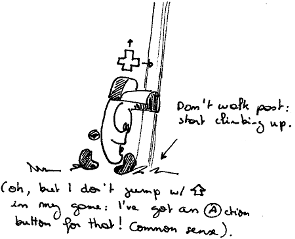 Don't walk past:
start climbing up.
(oh, but I don't jump w/ ⇧
in my game: I've got an Ⓐction
button for that! Common sense).